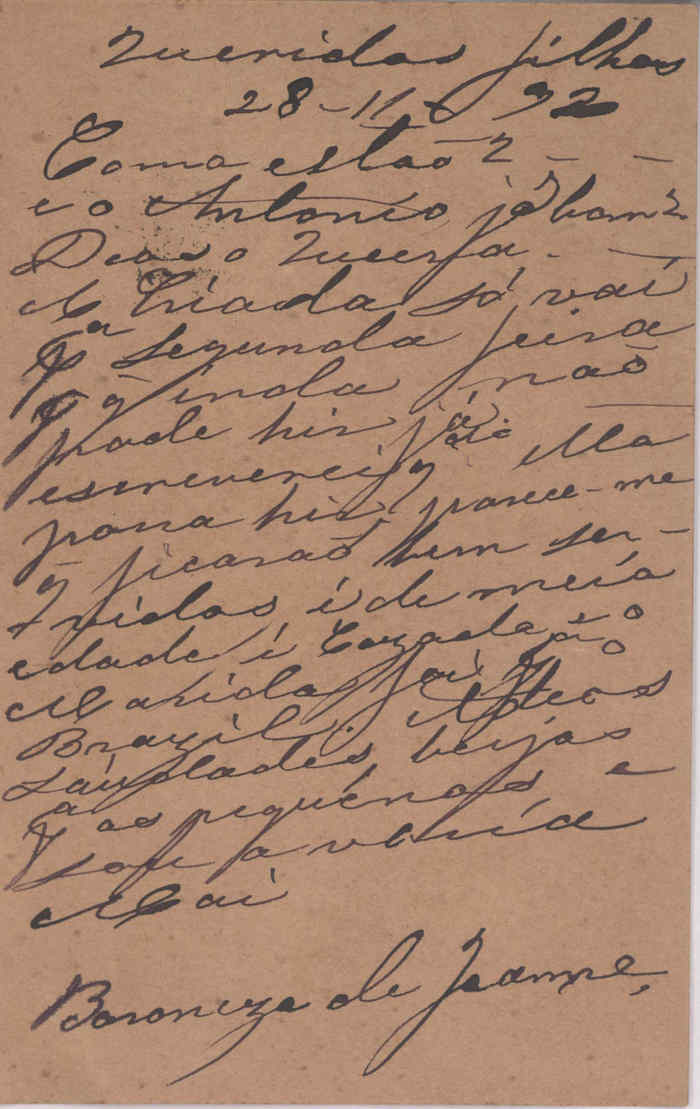 Queridos filhos
28-11-92
Como estão?
e o Antonio já bom?
Deos o queira.
A Criada só vai
segunda feira
q̃ inda não
pode hir já.
escreverei q̃
para hir, parece-me
q̃ ficarão bem ser-
vidos é de meia
edade é Cazada e o
Marido foi p
Brazil.
Saudades, beijos
aos pequenos e
sou a vossa
Mai
Baroneza de